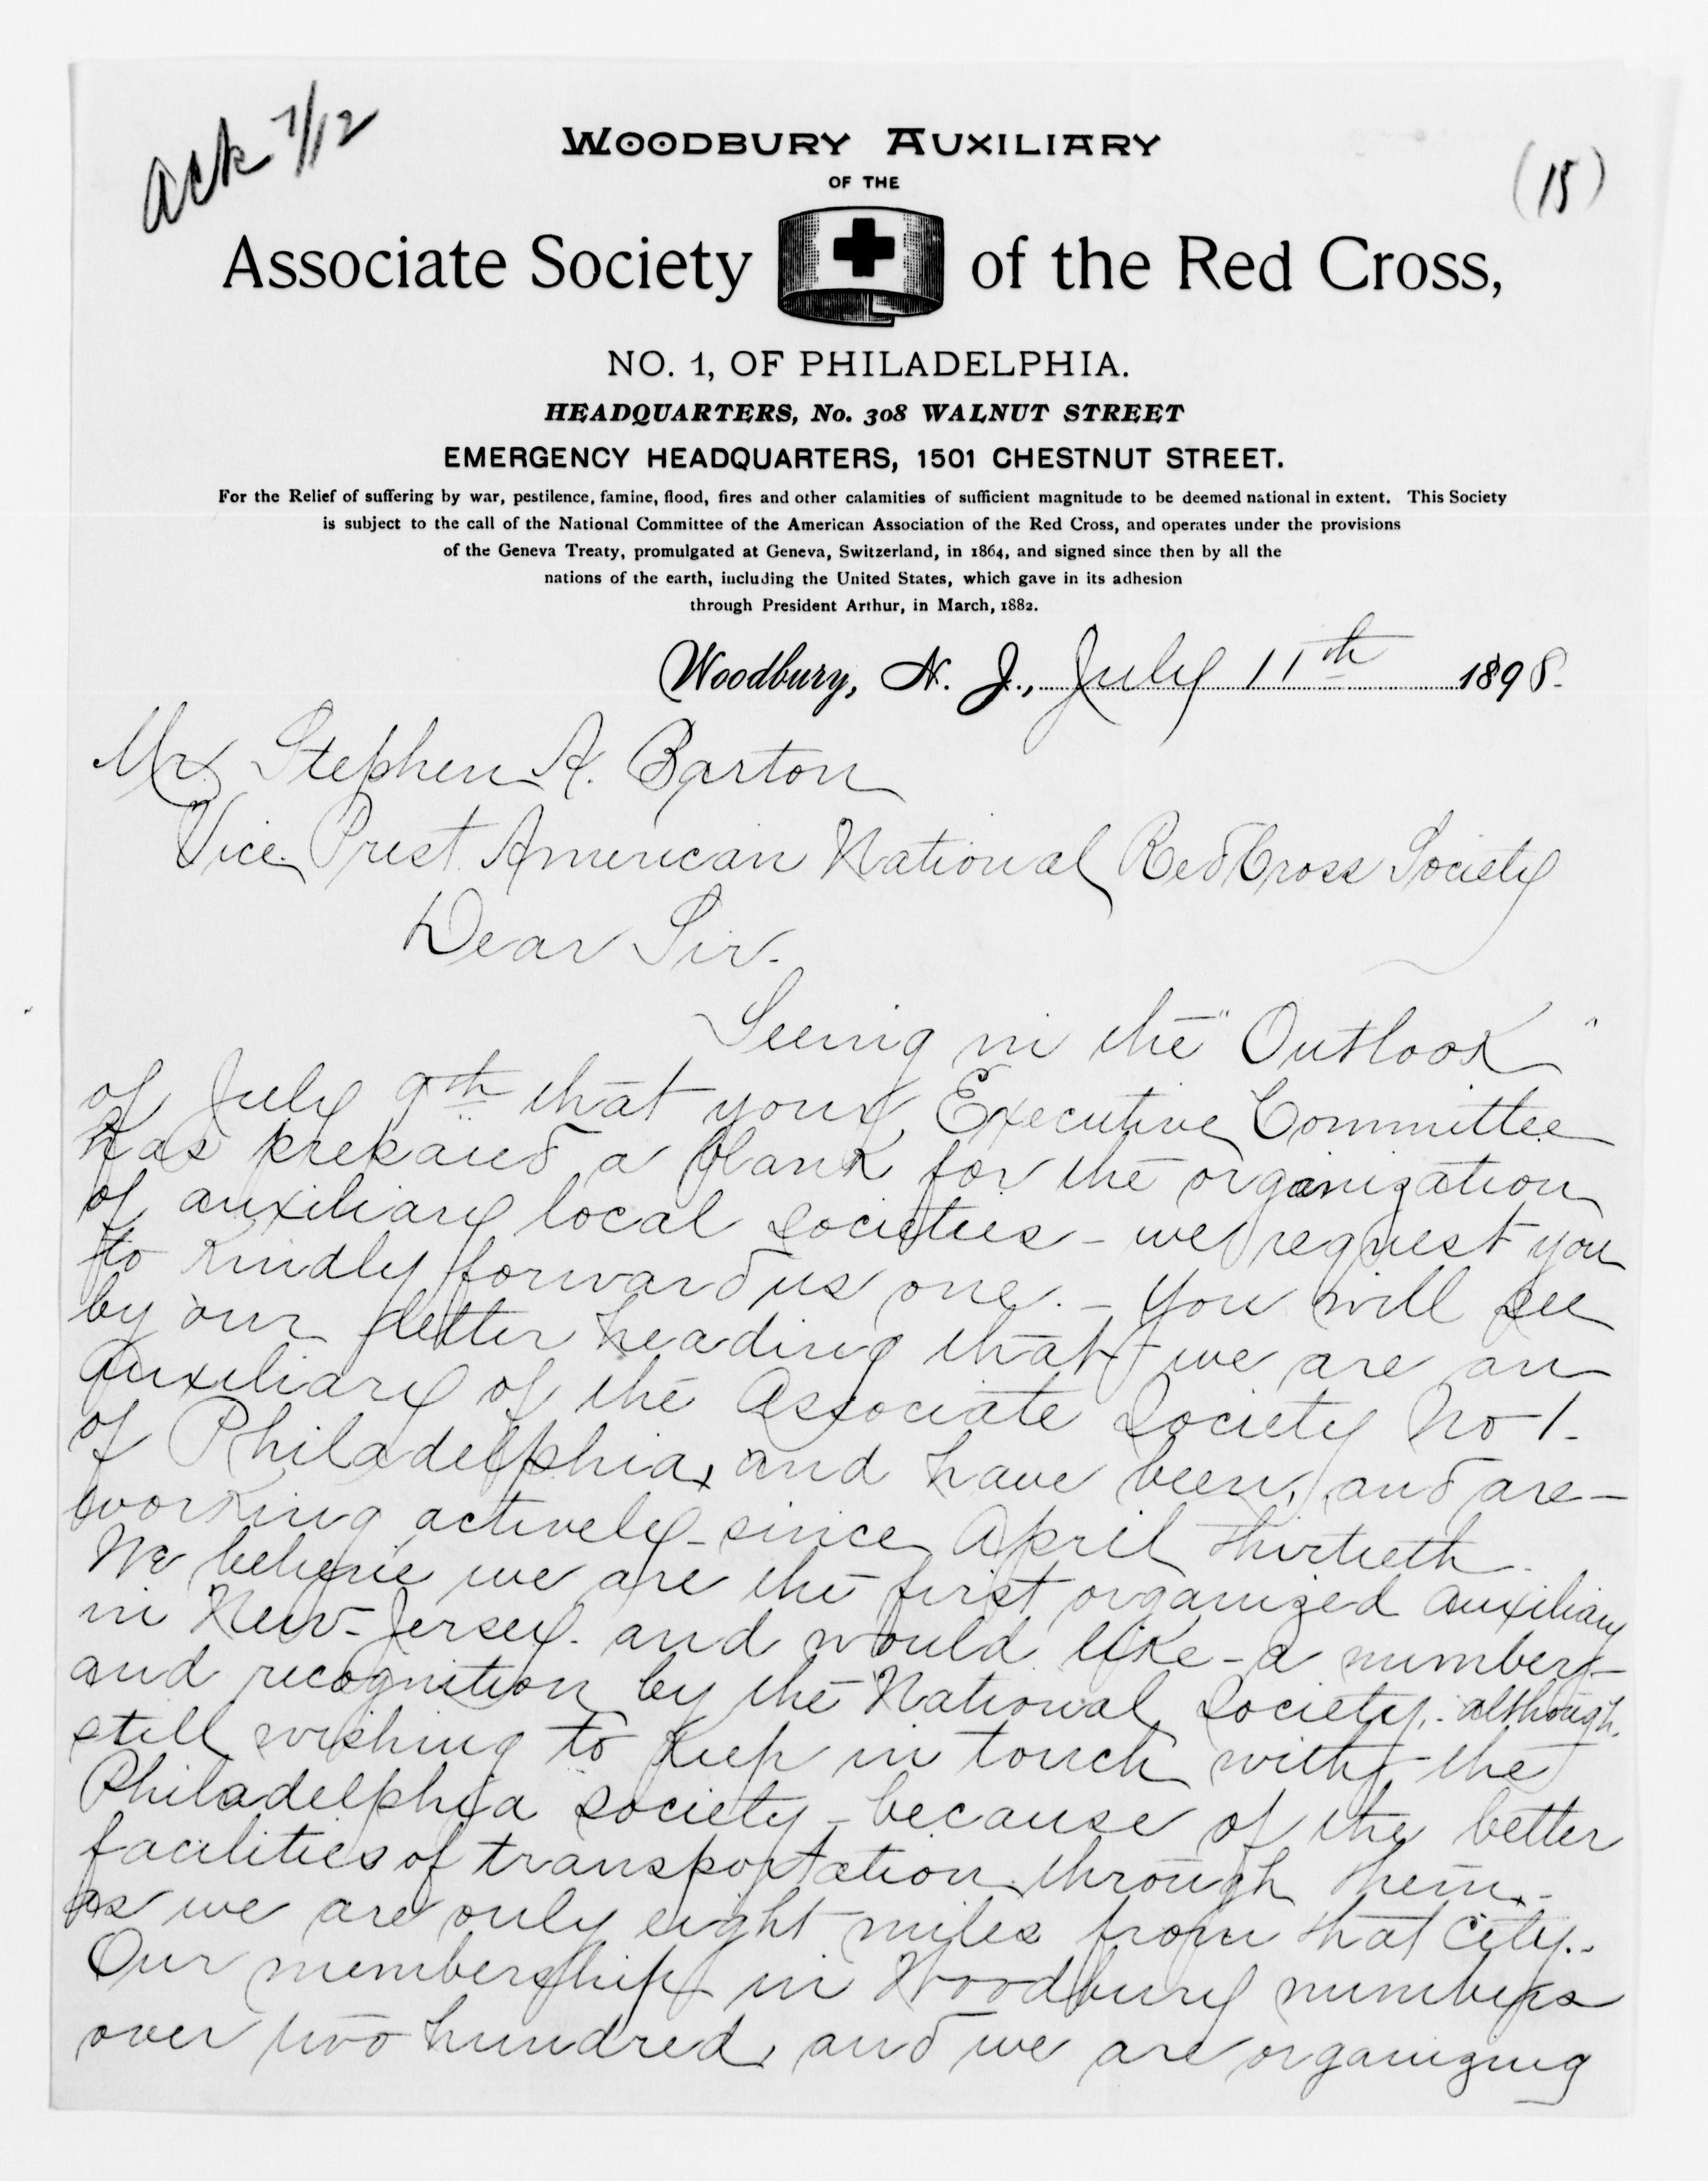 ack 7/12
(15)
WOODBURY AUXILIARY
OF THE
Associate Society of the Red Cross,
NO. 1, OF PHILADELPHIA.
HEADQUARTERS, No. 308 WALNUT STREET
EMERGENCY HEADQUARTERS, 1501 CHESTNUT STREET.
For the Relief of suffering by war, pestilence, famine, flood, fires and other calamities of sufficient magnitude to be deemed national in extent. This Society
is subject to the call of the National Committee of the American Association of the Red Cross, and operates under the provisions
of the Geneva Treaty, promulgated at Geneva, Switzerland, in 1864, and signed since then by all the
nations of the earth, including the United States, which gave in its adhesion
through President Arthur, in March, 1882.
Woodbury, N. J., July 11th 1898.
Mr. Stephen A. Barton
Vice Prest. American National Red Cross Society
Dear Sir.
Seeing in the "Outlook"
of July 9th that your Executive Committee
has prepared a blank for the organization
of auxiliary local societies - we request you
to kindly forward us one. - You will see
by our letter heading that we are an
Auxiliary of the Associate Society No 1.
of Philadelphia, and have been, and are -
working actively - since April thirtieth.
We believe we are the first organized auxiliary
in New-Jersey. and would like - a number -
and recognition by the National Society. although.
still wishing to keep in touch with the
Philadelphia society - because of the better
facilities of transportation through them. -
as we are only eight miles from that City..
Our membership in Woodbury numbers
over two hundred, and we are organizing